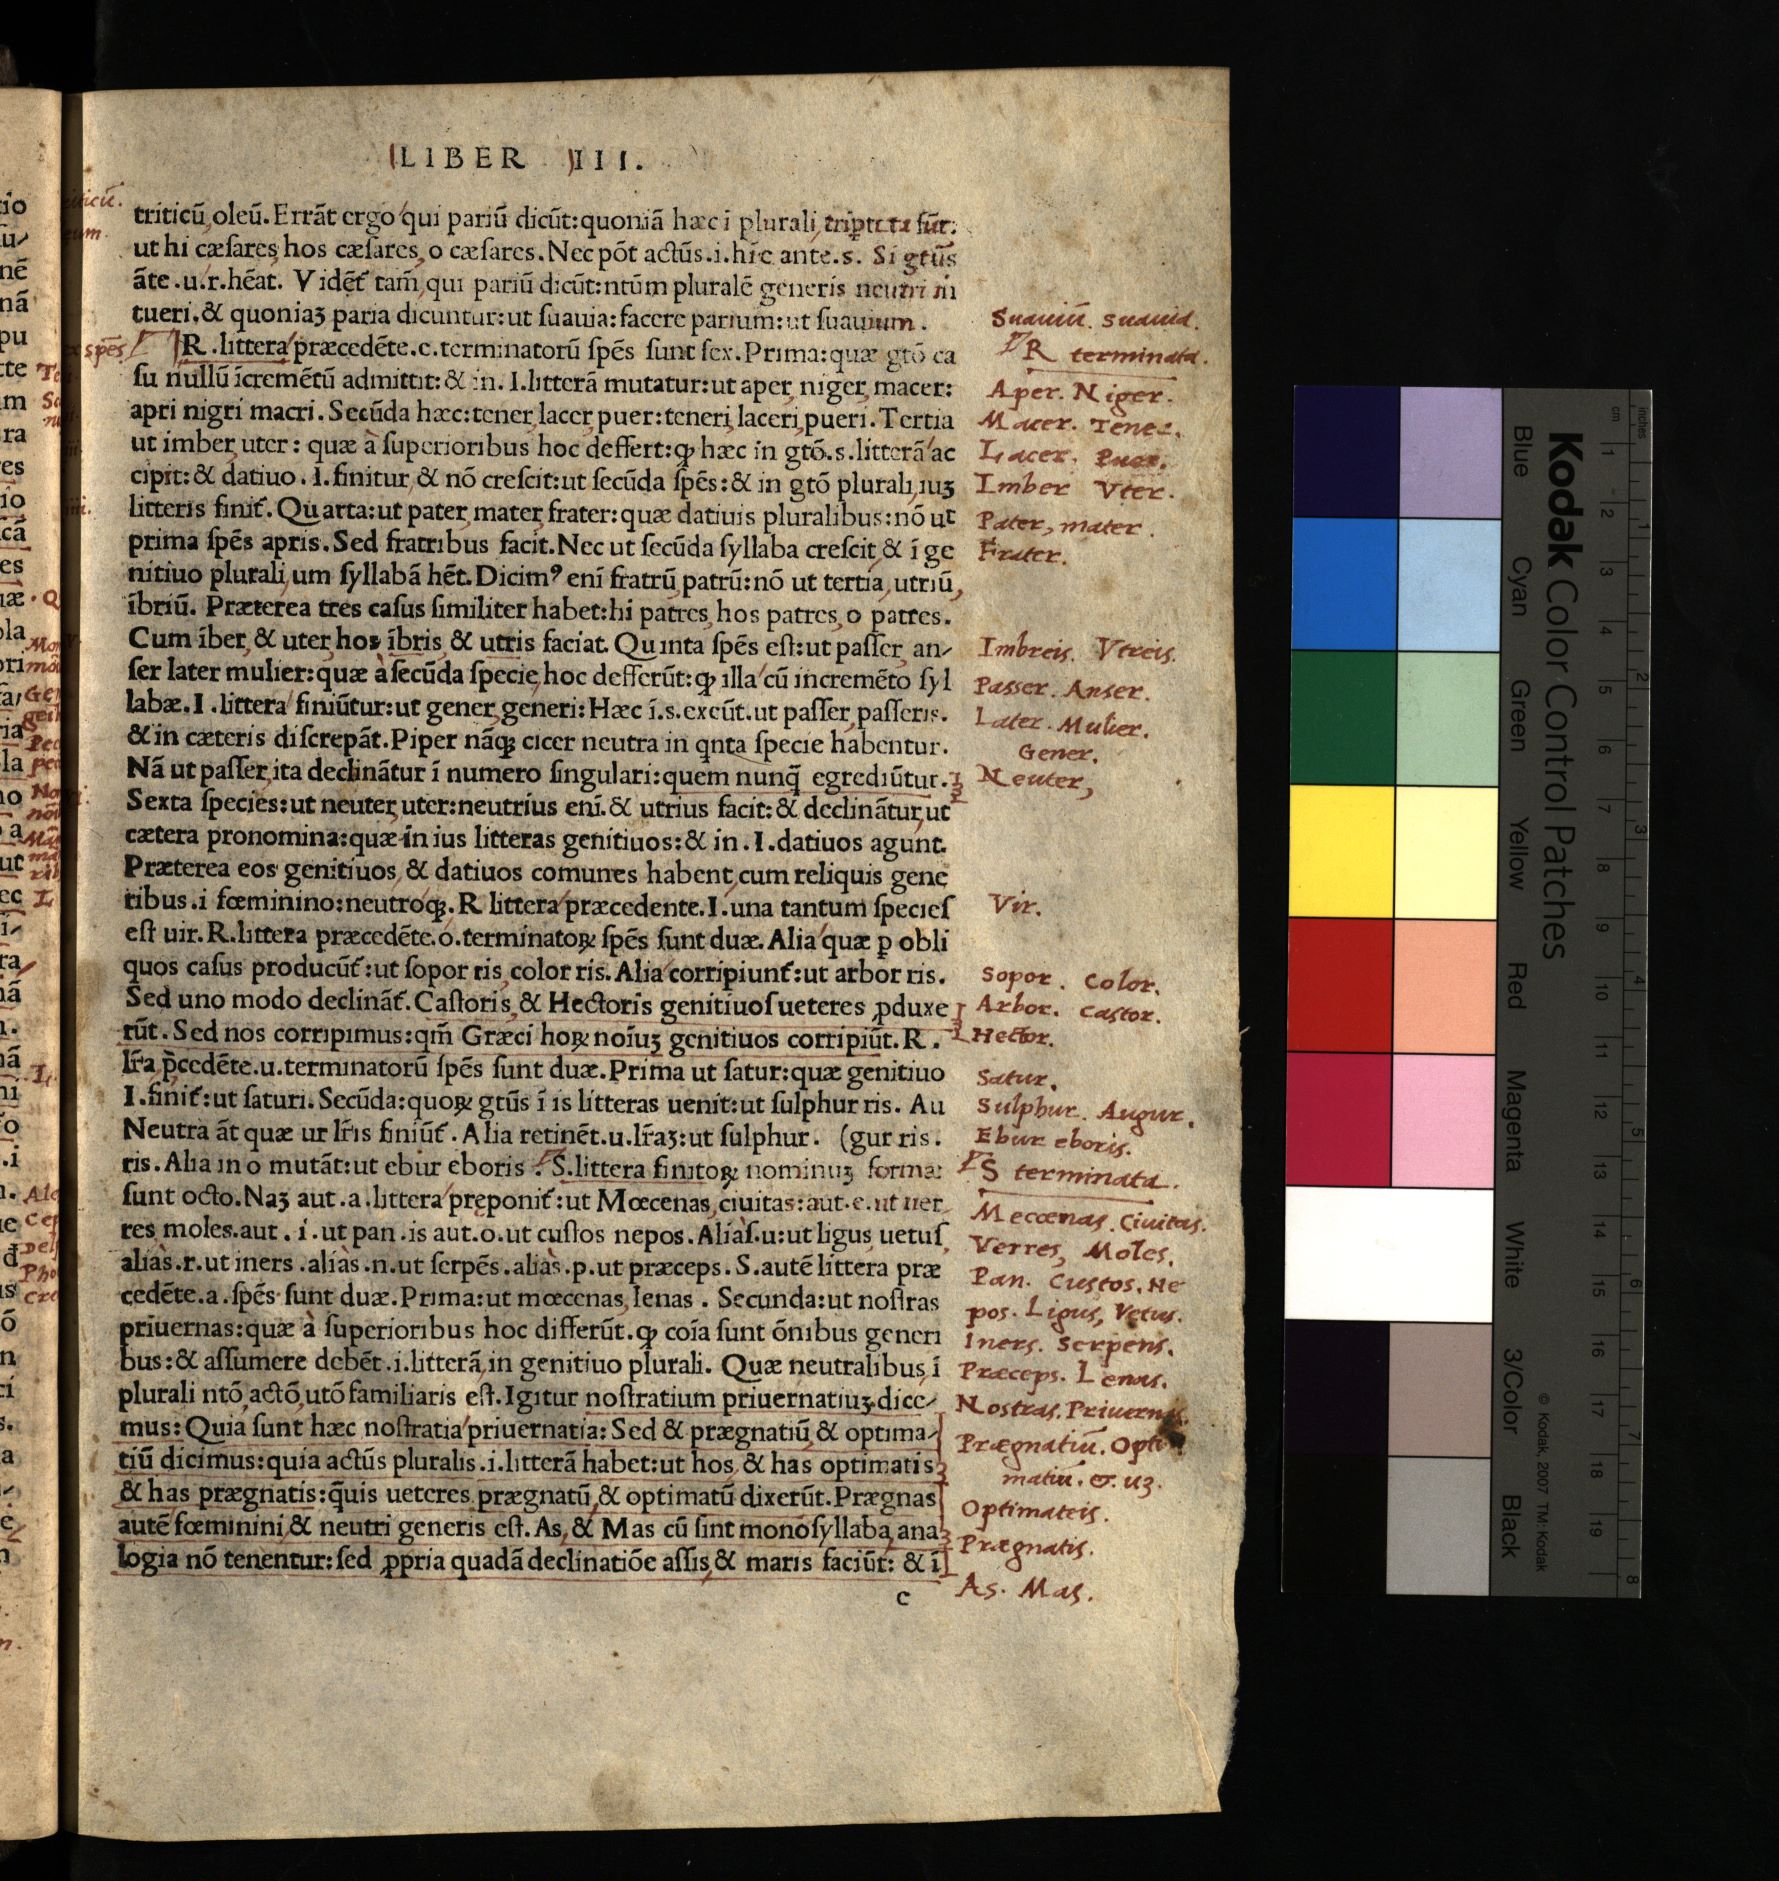 LIBER III.
triticū, oleū. Errāt ergo qui pariū dicūt: quoniā hæc ī plurali, triptota sūt:
ut hi cæsares, hos cæsares, o cæsares. Nec pōt actūs .i. hīc ante .s. Si gtūs
āte .u. r. hēat. Vidēt̄ tam̄, qui pariū dicūt: ntūm pluralē generis neutri in
tueri. & quoniaꝫ paria dicuntur: ut suauia: facere parium: ut suauium.
R. littera præcedēte .e. terminatorū spēs sunt sex. Prima: quæ gtō ca
su nullū īcremētū admittit: & in. I. litterā mutatur: ut aper, niger, macer:
apri nigri macri. Secūda hæc: tener, lacer, puer: teneri, laceri, pueri. Tertia
ut imber, uter: quæ à superioribus hoc deffert: ꝙ hæc in gtō. s. litterā ac
cipit: & datiuo. I. finitur, & nō crescit: ut secūda spēs: & in gtō plurali, iuꝫ
litteris finit̄. Quarta: ut pater, mater, frater: quæ datiuis pluralibus: nō ut
prima spēs apris. Sed fratribus facit. Nec ut secūda syllaba crescit, & ī ge
nitiuo plurali, um syllabā hēt. Dicimꝰ enī fratrū, patrū: nō ut tertia, utriū,
ībriū. Præterea tres casus similiter habet: hi patres, hos patres, o patres.
Cum īber, & uter, hos ībris & utris faciat. Quinta spēs est: ut passer, an-
ser later mulier: quæ à secūda specie, hoc defferūt: ꝙ illa cū incremēto syl
labæ. I. littera finiūtur: ut gener, generi: Hæc ī .s. exeūt. ut passer, passeris.
& in cæteris discrepāt. Piper nāqꝫ cicer neutra in qnta specie habentur.
Nā ut passer, ita declinātur ī numero singulari: quem nunq̄ egrediūtur.
Sexta species: ut neuter, uter: neutrius enī. & utrius facit: & declinātur, ut
cætera pronomina: quæ in ius litteras genitiuos: & in. I. datiuos agunt.
Præterea eos genitiuos, & datiuos comunes habent, cum reliquis gene
ribus .i fœminino: neutroqꝫ. R littera præcedente. I. una tantum species
est uir. R. littera præcedēte. o. terminatoꝝ spēs sunt duæ. Alia quæ ꝑ obli
quos casus producūt̄: ut sopor ris, color ris. Alia corripiunt̄: ut arbor ris.
Sed uno modo declināt̄. Castoris, & Hectoris genitiuos ueteres ꝓduxe
rūt. Sed nos corripimus: qm̄ Græci hoꝝ noīuꝫ genitiuos corripiūt. R.
lr̄a p̄cedēte. u. terminatorū spēs sunt duæ. Prima ut satur: quæ genitiuo
I. finit̄: ut saturi. Secūda: quoꝝ gtūs ī is litteras uenit: ut sulphur ris. Au
Neutra āt quæ ur lr̄is finiūt̄. Alia retinēt. u. lr̄aꝫ: ut sulphur. (gur ris.
ris. Alia in o mutāt: ut ebur eboris. S. littera finitoꝝ nominuꝫ formæ
sunt octo. Naꝫ aut .a. littera præponit̄: ut Mœcenas, ciuitas: aut .e. ut uer
res moles. aut .i. ut pan.is aut .o. ut custos nepos. Aliàs .u: ut ligus, uetus,
aliàs .r. ut iners. aliàs .n. ut serpēs. aliàs .p. ut præceps. S. autē littera præ
cedēte .a. spēs sunt duæ. Prima: ut mœcenas, lenas. Secunda: ut nostras
priuernas: quæ à superioribus hoc differūt. ꝙ coīa sunt ōnibus generi
bus: & assumere debēt .i. litterā, in genitiuo plurali. Quæ neutralibus, ī
plurali ntō, actō, utō familiaris est. Igitur nostratium priuernatiuꝫ dice-
mus: Quia sunt hæc nostratia priuernatia: Sed & prægnatiū & optima-
tiū dicimus: quia actūs pluralis .i. litterā habet: ut hos, & has optimatis
& has prægnatis: q̄uis ueteres prægnatū, & optimatū dixerūt. Prægnas
autē fœminini, & neutri generis est. As, & Mas cū sint monosyllaba, ana
logia nō tenentur: sed ꝓpria quadā declinatiōe assis, & maris faciūt: & ī
c
Suauiū. Suauia.
R terminata.
Aper. Niger.
Macer. Tener.
Lacer. Puer.
Imber Vter.
Pater, mater.
Frater.
Imbreis. Vtreis.
Passer. Anser.
Later. Mulier.
Gener.
Neuter,
Vir.
Sopor. Color.
Arbor. Castor.
Hector.
Satur.
Sulphur. Augur.
Ebur eboris.
S terminata.
Mecœnas. Ciuitas.
Verres, Moles.
Pan. Custos. Ne
pos. Ligus, Vetus.
Iners. Serpens.
Præceps. Lenas.
Nostras. Priuernas.
Prægnatiū. Opti
matiū. & uꝫ.
Optimateis.
Prægnatis.
As. Mas.
Kodak Color Control Patches
Blue Cyan Green Yellow Red Magenta White 3/Color Black
© Kodak, 2007 TM: Kodak
inches 1 2 3 4 5 6 7 8
cm 1 2 3 4 5 6 7 8 9 10 11 12 13 14 15 16 17 18 19